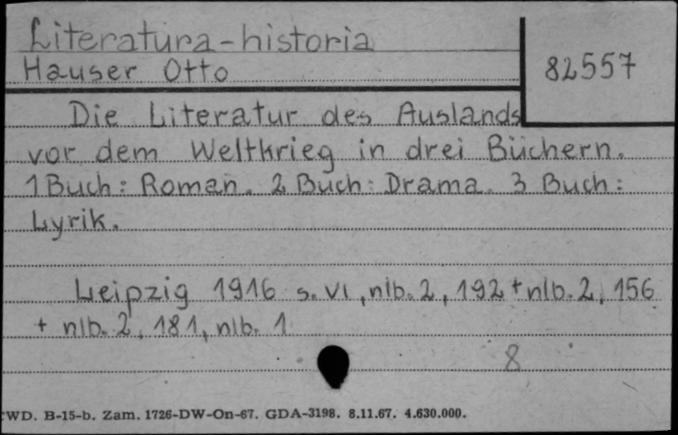 Literatura-historia
Hauser Otto
82557
Die Literatur des Auslands
vor dem Weltkrieg in drei Büchern.
1 Buch: Roman. 2 Buch: Drama. 3 Buch:
Lyrik.
Leipzig 1916 s. VI, nlb. 2, 192 + nlb. 2, 156
+ nlb. 2, 181, nlb. 1
8
WD. B-15-b. Zam. 1726-DW-On-67. GDA-3198. 8.11.67. 4.630.000.